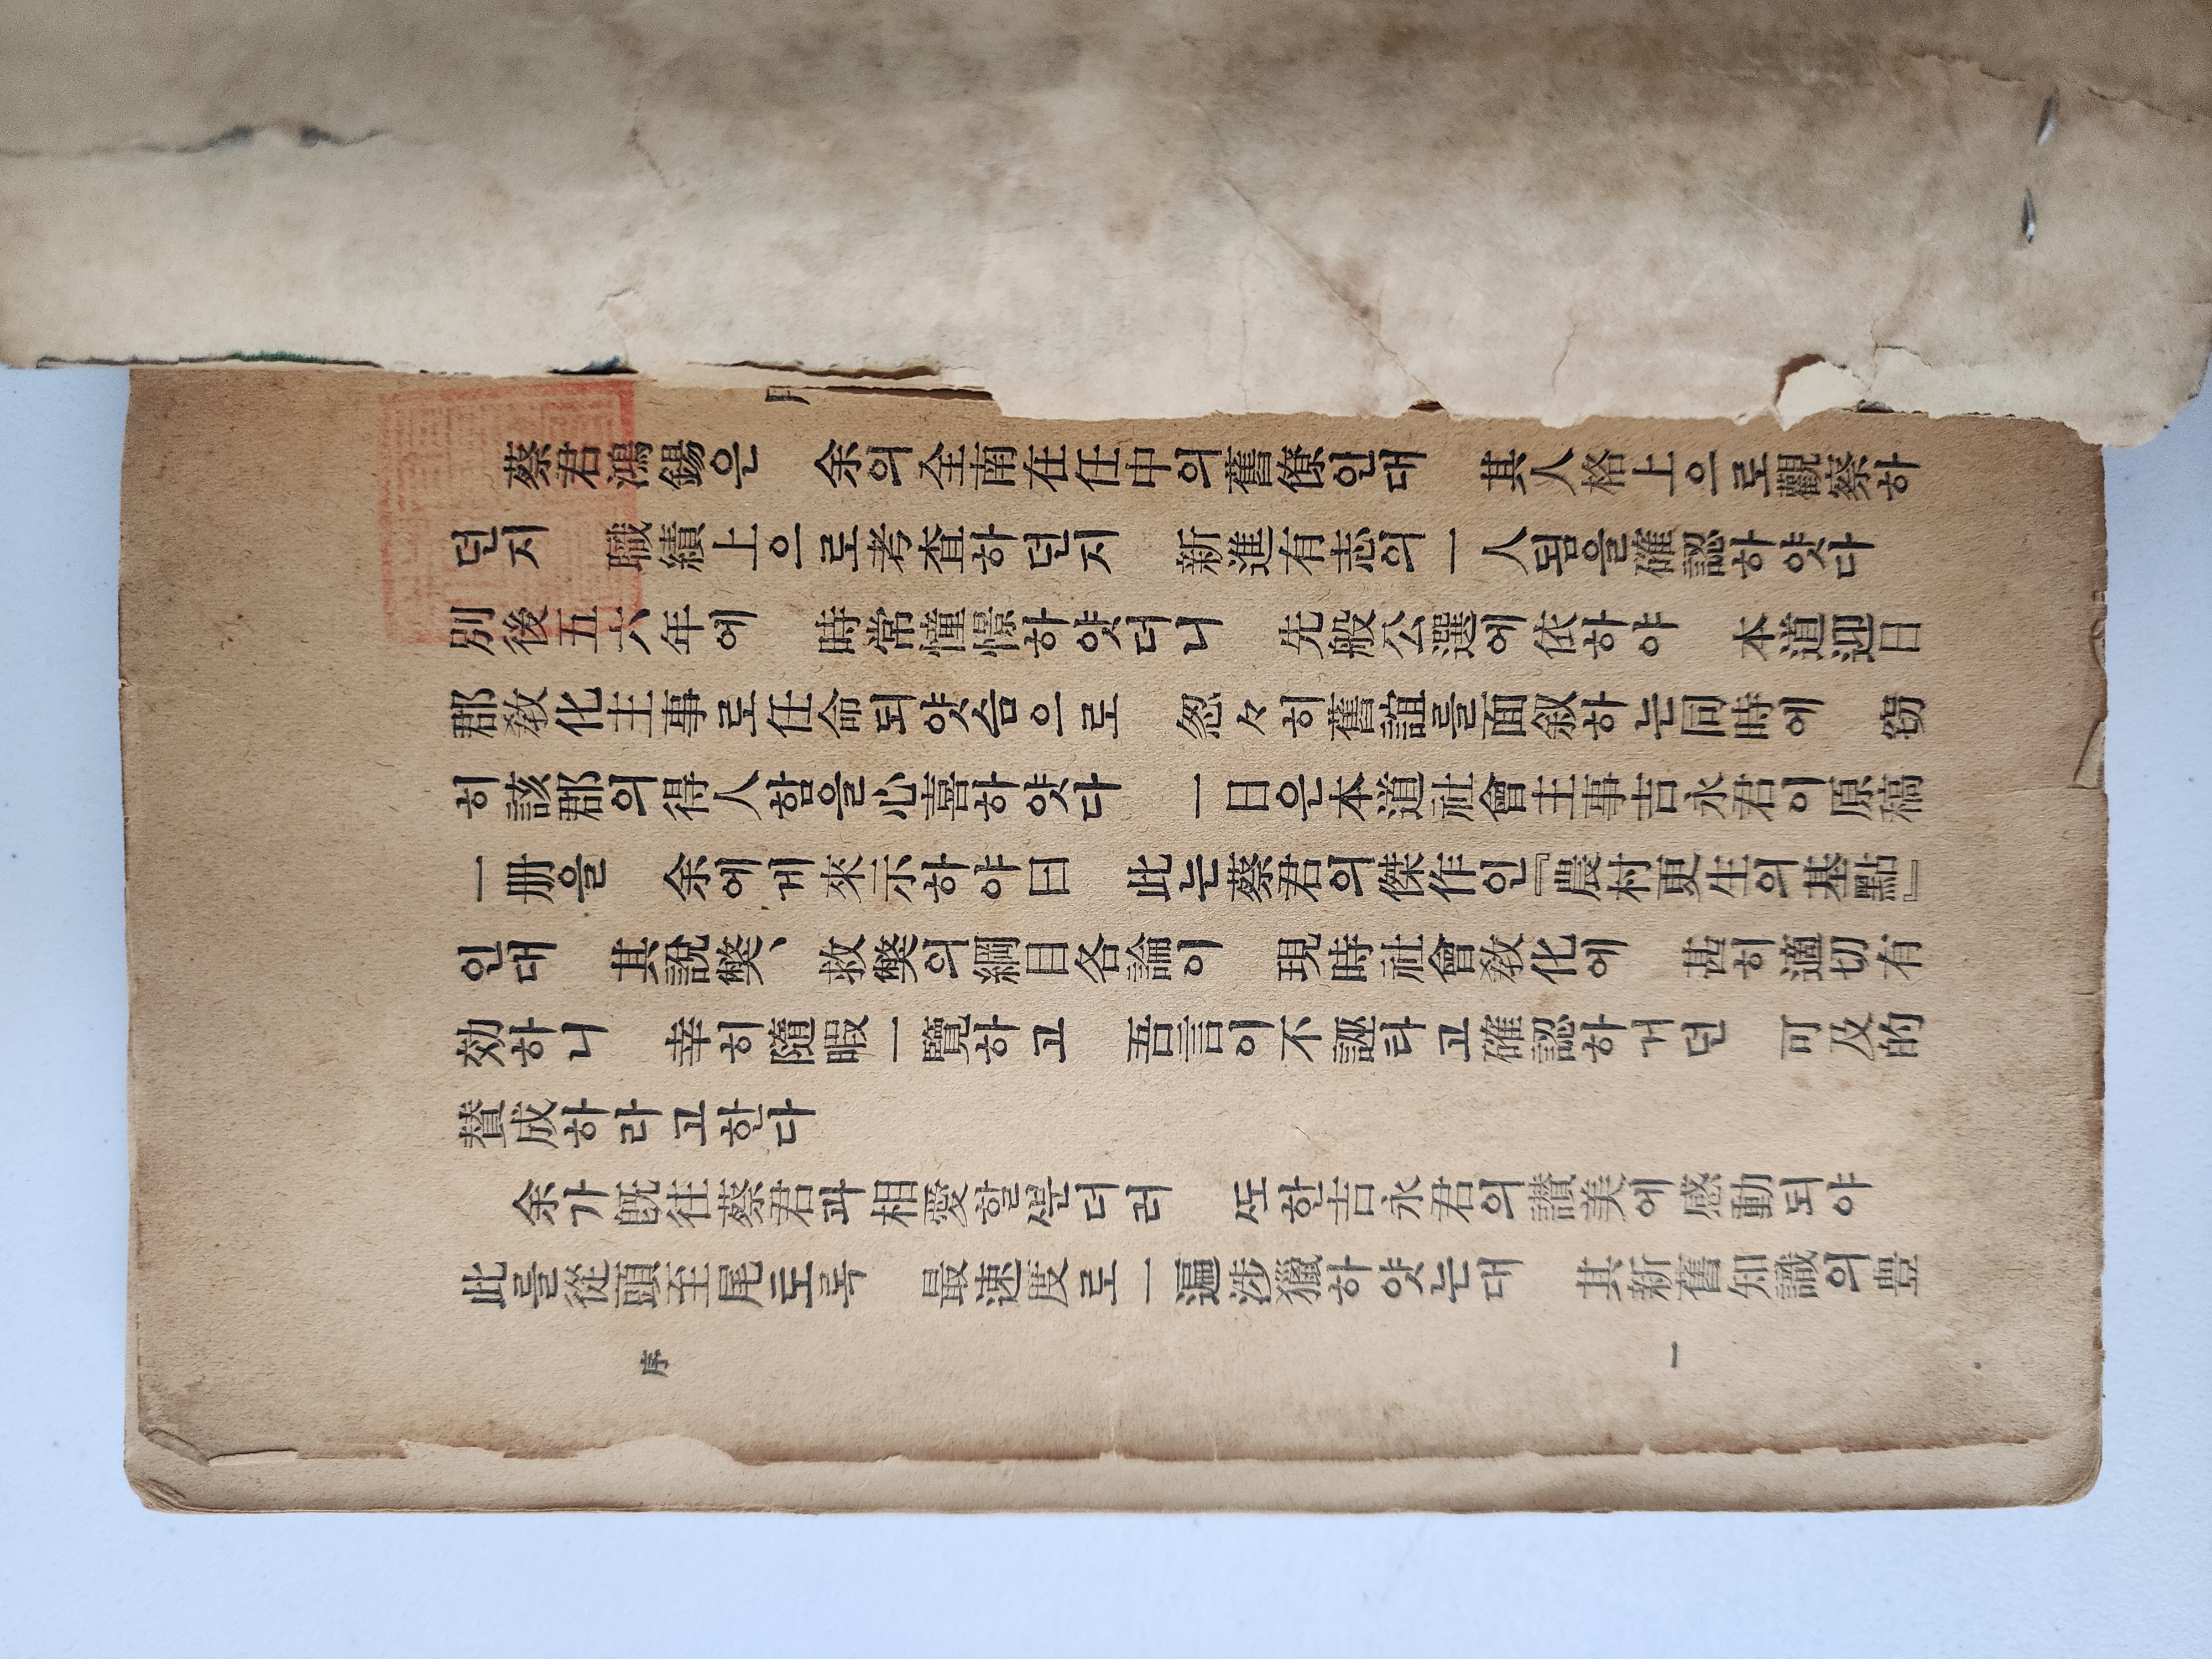 蔡君鴻錫은 余의全南在任中의舊僚인대 其人格上으로觀察하
던지 職績上으로考査하던지 新進有志의一人됨을確認하얏다
別後五六年에 時常憧憬하얏더니 先般公選에依하야 本道迎日
郡敎化主事로任命되얏슴으로 忽々히舊誼를面叙하는同時에 窃
히該郡의得人함을心喜하얏다 一日은本道社會主事吉永君이原稿
一册을 余에게來示하야曰 此는蔡君의傑作인『農村更生의基點』
인대 其說弊、救弊의綱目各論이 現時社會敎化에 甚히適切有
効하니 幸히隨暇一覽하고 吾言이不誣라고確認하거던 可及的
賛成하라고한다
余가旣往蔡君과相愛할뿐더러 ᄯᅩ한吉永君의讃美에感動되야
此를從頭至尾토록 最速度로一遍涉獵하얏는대 其新舊知識의豊
序 一